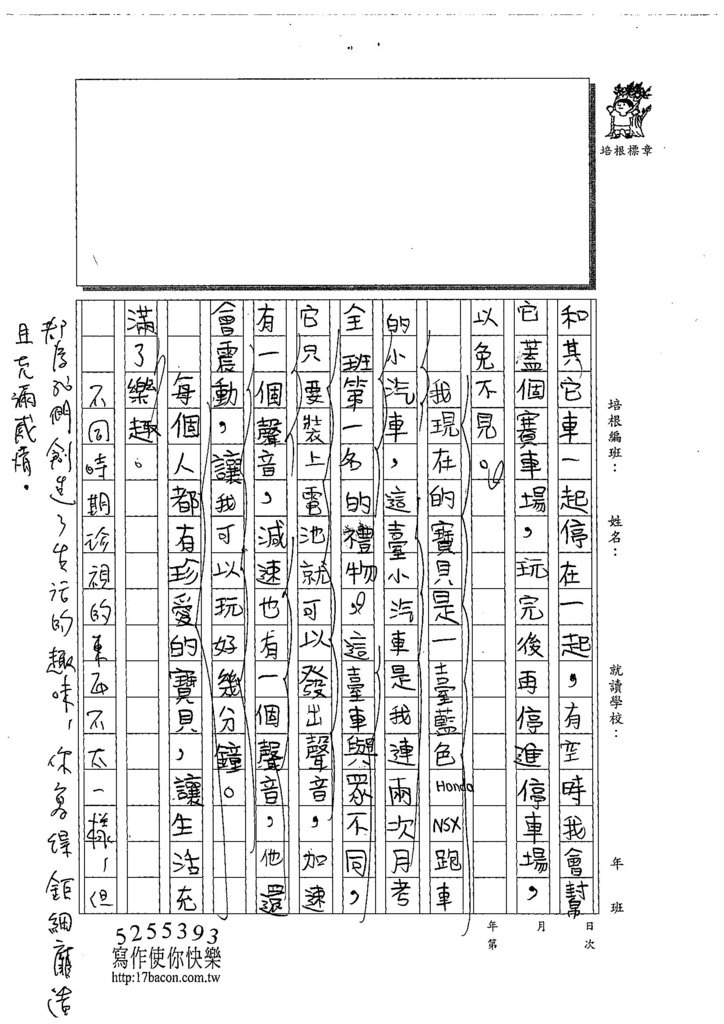 培根標章
培根編班：
姓名：
就讀學校：
年
班
日
次
月
年
第
和其它車一起停在一起，有空時我會幫
它蓋個賽車場，玩完後再停進停車場，
以免不見。
我現在的寶貝是一臺藍色Honda NSX跑車
的小汽車，這臺小汽車是我連兩次月考
全班第一名的禮物，這臺車與眾不同，
它只要裝上電池就可以發出聲音，加速
有一個聲音，減速也有一個聲音，他還
會震動，讓我可以玩好幾分鐘。
每個人都有珍愛的寶貝，讓生活充
滿了樂趣。
不同時期珍視的東西不太一樣，但
都為你們創造了生活的趣味，你寫得鉅細靡遺
且充滿感情。
5255393
寫作使你快樂
http:17bacon.com.tw